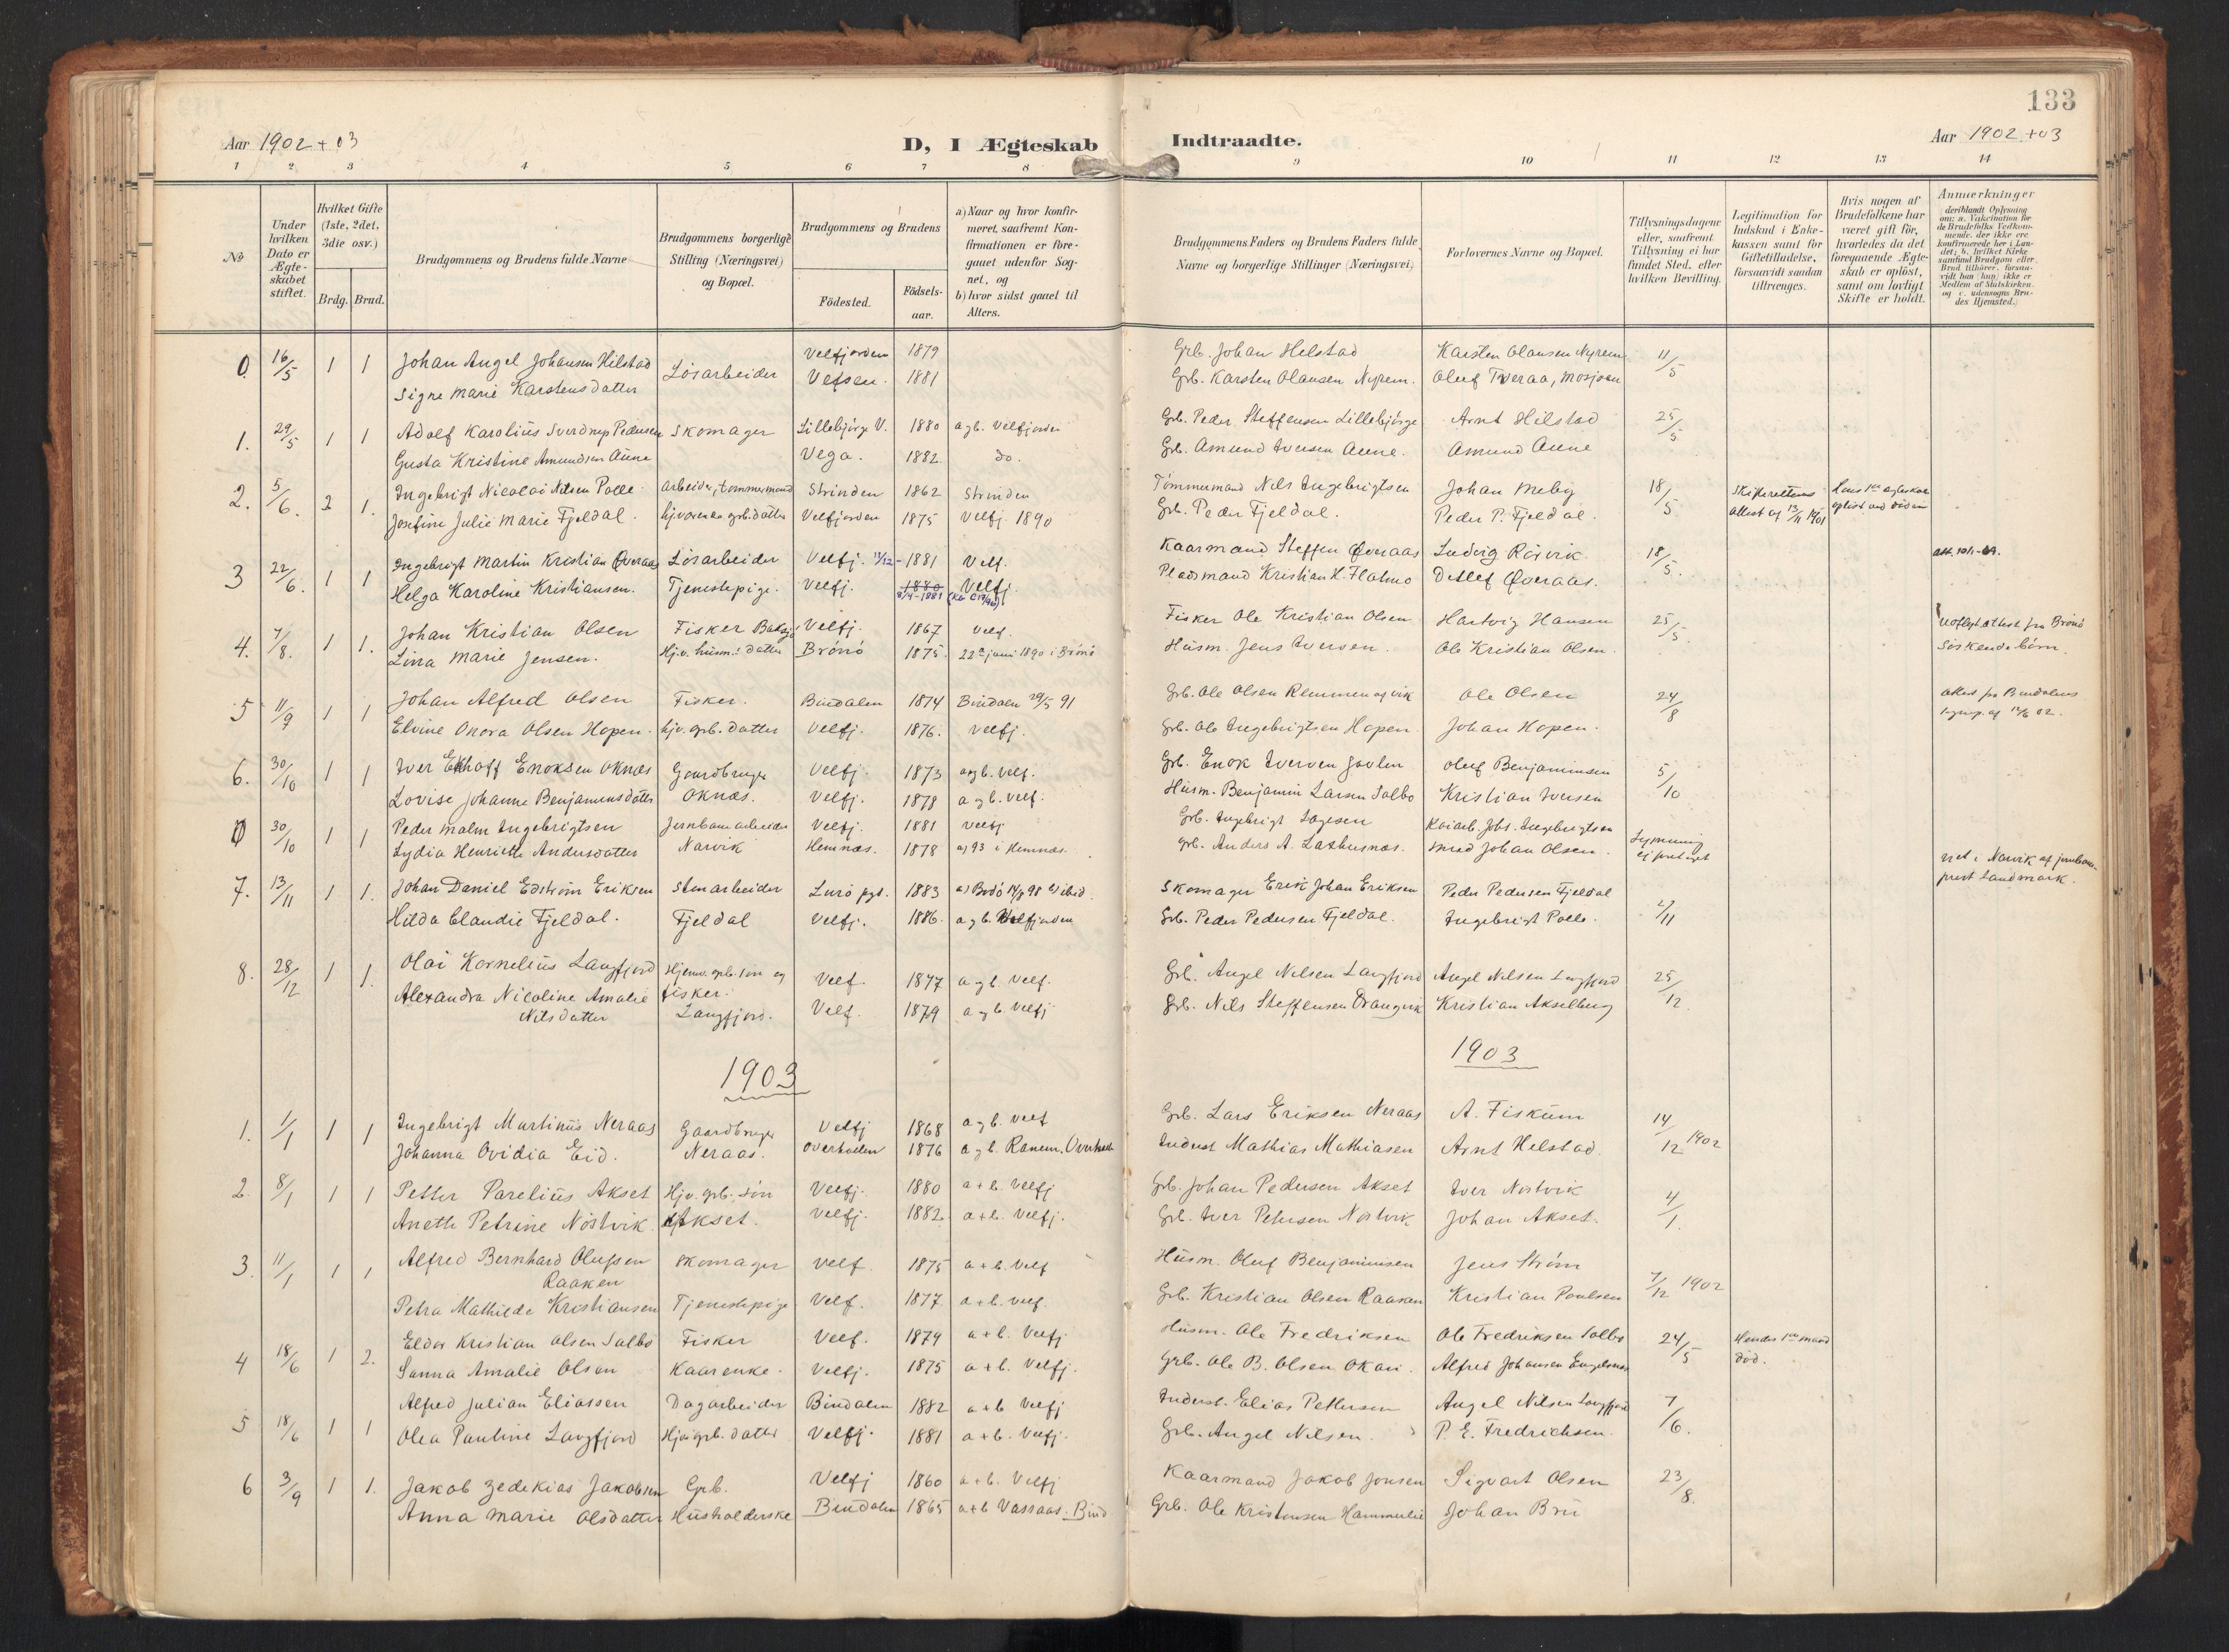 133
Aar 1902 + 03
D, I Ægteskab Indtraadte.
Aar 1902 + 03
1 2 3 4 5 6 7 8 9 10 11 12 13 14
No
Under hvilken Dato er Ægteskabet stiftet.
Hvilket Gifte (1ste, 2det, 3die osv.)
Brdg. Brud.
Brudgommens og Brudens fulde Navne
Brudgommens borgerlige Stilling (Næringsvei) og Bopæl.
Brudgommens og Brudens
Födested.
Födselsaar.
a) Naar og hvor konfirmeret, saafremt Konfirmationen er foregaaet udenfor Sognet, og
b) hvor sidst gaaet til Alters.
Brudgommens Faders og Brudens Faders fulde Navne og borgerlige Stillinger (Næringsvei)
Forlovernes Navne og Bopæl.
Tillysningsdagene eller, saafremt Tillysning ei har fundet Sted, efter hvilken Bevilling.
Legitimation for Indskud i Enkekassen samt for Giftetilladelse, forsaavidt saadan tiltrænges.
Hvis nogen af Brudefolkene har været gift för, hvorledes da det foregaaende Ægteskab er oplöst, samt om lovligt Skifte er holdt.
Anmærkninger
0. 16/5 1 1 Johan Angel Johansen Hilstad Løsarbeider Velfjorden 1879 Grb. Johan Helstad Karsten Olausen Nyrem 11/5
Signe Marie Karstensdatter Vefsen. 1881 Grb. Karsten Olausen Nyrem. Oluf Tveraa, Mosjøen
1. 29/5 1 1 Adolf Karolius Sverdrup Pedersen Skomager Lillebjørge V. 1880 a g b. Velfjorden Grb. Peder Steffensen Lillebjørge Arnt Hilstad 25/5
Gusta Kristine Amundsen Aune Vega. 1882 do. Grb. Amund Iversen Aune. Amund Aune
2. 5/6. 2 1. Ingebrigt Nicolai Nilsen Polle arbeider, tømmermand Strinden 1862 Strinden Tømmermand Nils Ingebrigtsen Johan Meby 18/5 Skifterettens
Josefine Julie Marie Fjeldal. hjvarende grb. datter Velfjorden 1875 Velfj. 1890 Grb. Peder Fjeldal. Peder P. Fjeldal. attest af 13/11 1901
3 22/6. 1 1 Ingebrigt Martin Kristian Øveraas Løsarbeider Velfj. 11/12-1881 Velf. Kaarmand Steffen Øveraas Ludvig Røsvik 18/5.
Helga Karoline Kristiansen. Tjenestepige. Velfj. 1880 Velfj. Pladsmand Kristian H. Flatmo Detlef Øveraas.
8/4-1881
4. 7/8. 1 1. Johan Kristian Olsen Fisker Velfj. 1867 Velf. Fisker Ole Kristian Olsen Hartvig Hansen 25/5
Lina Marie Jensen. Hj.v. husm. datter Brønø 1875. 22de juni 1890 i Brønø Husm. Jens Iversen. Ole Kristian Olsen. Søskendebørn.
5 11/9 1 1 Johan Alfred Olsen Fisker. Bindalen 1874 Bindalen 29/5 91 Grb. Ole Olsen Ole Olsen 24/8
Elvine Onora Olsen Hopen. hjv. grb. datter Velfj. 1876. Velfj. Grb. Ole Ingebrigtsen Hopen. Johan Hopen.
6. 30/10 1 1 Iver Ekhoff Enoksen Oknæs Gaardbruger Velfj. 1873 a g b. Velf. Grb. Enok Iversen Oluf Benjaminsen 5/10
Lovise Johanne Benjaminsdatter Oknæs. Velfj. 1878 a g b. Velf. Husm. Benjamin Larsen Salbo Kristian Iversen
0 30/10 1 1 Peder Malm Ingebrigtsen Jernbanearbeider Velfj. 1881 Velfj Grb. Ingebrigt
Lydia Henriette Andersdatter Narvik Hemnæs. 1878 a) 93 i Hemnæs. grb. Anders A. Smed Johan Olsen.
viet i Narvik af jernbaneprest Landmark.
7. 13/11 1 1. Johan Daniel Edstrøm Eriksen Stenarbeider Lurø pgd. 1883 Skomager Erik Johan Eriksen Peder Pedersen Fjeldal 2/11
Hilda Claudie Fjeldal. Fjeldal Velfj. 1886. a g b. Velfjorden Grb. Peder Pedersen Fjeldal. Ingebrigt Polle.
8. 28/12 1 1. Olai Kornelius Langfjord Hjemv. grb. søn og Velf. 1877 a g b. Velf. Grb. Angel Nilsen Langfjord Angel Nilsen Langfjord 25/12
Alexandra Nicoline Amalie fisker.
Nilsdatter Langfjord. Velf. 1879 a g b. Velfj Grb. Nils Steffensen Kristian Akselberg
1903 1903
1. 1/1 1 1 Ingebrigt Martinus Neraas Gaardbruger Velfj 1868 a g b. Velf Grb. Lars Eriksen Neraas A. Fiskum 14/12 1902
Johanna Ovidia Eid. Neraas. Overhallen 1876 a g b. Ranem. Inderst Mathias Mathiasen Arnt Helstad.
2. 8/1 1 1 Petter Parelius Akset Hjv. grb. søn Velfj. 1880 a + b. Velfj Grb. Johan Pedersen Akset Iver Nøstvik 4/1.
Aneth Petrine Nøstvik. Akset. Velfj. 1882. a + b. Velfj. Grb. Iver Petersen Nøstvik Johan Akset.
3. 11/1 1 1 Alfred Bernhard Olufsen Skomager Velf. 1875 a + b. Velf Husm. Oluf Benjaminsen Jens Strøm 7/12 1902
Raaken
Petra Mathilde Kristiansen Tjenestepige Velf. 1877 a + b. Velf. Grb. Kristian Olsen Raaken Kristian Paulsen
4 18/6 1 2. Eldor Kristian Olsen Salbo Fisker Velf. 1879 a + b. Velfj Husm. Ole Fredriksen Ole Fredriksen Salbo 24/5 Hendes 1ste mand
Sanna Amalie Olsen Kaarenke. Velfj. 1875 a + b. Velfj. Grb. Ole B. Olsen Okan. Alfred Johansen død.
5 18/6 1 1 Alfred Julian Eliassen Dagarbeider Bindalen 1882 a + b Velfj Inderst. Elias Pettersen Angel Nilsen Langfjord 7/6.
Olea Pauline Langfjord Hjv. grb. datter Velfj. 1881 a + b. Velfj. Grb. Angel Nilsen. P. E. Fredrichsen.
6 3/9 1 1. Jakob Zedekias Jakobsen Grb. Velfj 1860 a + b. Velfj Kaarmand Jakob Jonsen Sigvart Olsen 23/8.
Anna Marie Olsdatter Husholderske Bindalen 1865 a + b Vassaas. Bind Grb. Ole Kristensen Hammerlie Johan Brü